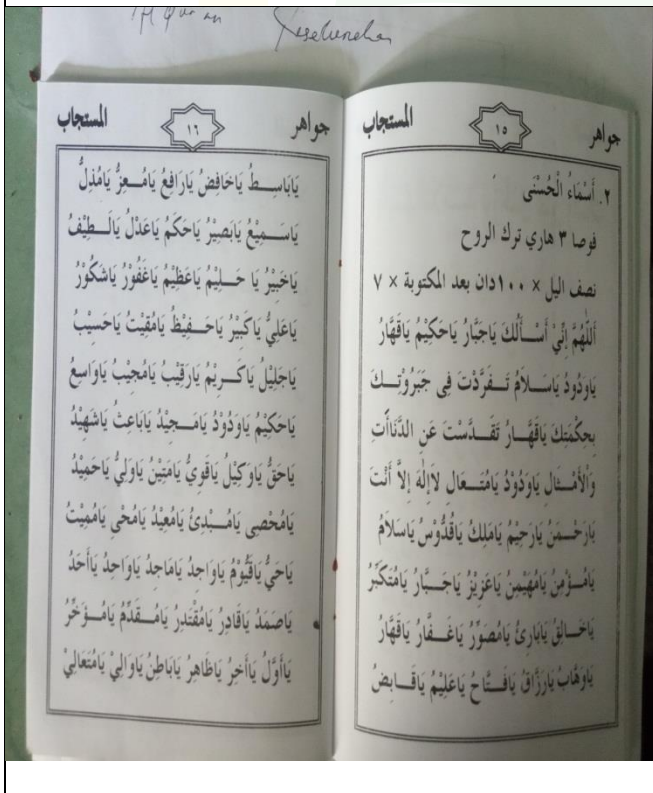 جواهر ١٥ المستجاب
٢. أَسْمَاءُ الْحُسْنَى
فوصا ٣ هاري ترك الروح
نصف اليل × ١٠٠دان بعد المكتوبة × ٧
اَللّٰهُمَّ إِنِّيْ أَسْأَلُكَ يَاجَبَّارُ يَاحَكِيْمُ يَاقَهَّارُ
يَاوَدُودُ يَاسَلاَمُ تَفَرَّدْتَ فِى جَبَرُوْتِكَ
بِحِكْمَتِكَ يَاقَهَّارُ تَقَدَّسْتَ عَنِ الدَّنَاأَتِ
وَالأَمْثَالِ يَاوَدُوْدُ يَامُتَعَالِ لاَإِلٰهَ إِلاَّ أَنْتَ
يَارَحْمٰنُ يَارَحِيْمُ يَامَلِكُ يَاقُدُّوْسُ يَاسَلاَمُ
يَامُؤْمِنُ يَامُهَيْمِنُ يَاعَزِيْزُ يَاجَبَّارُ يَامُتَكَبِّرُ
يَاخَالِقُ يَابَارِئُ يَامُصَوِّرُ يَاغَفَّارُ يَاقَهَّارُ
يَاوَهَّابُ يَارَزَّاقُ يَافَتَّاحُ يَاعَلِيْمُ يَاقَابِضُ
جواهر ١٦ المستجاب
يَابَاسِطُ يَاخَافِضُ يَارَافِعُ يَامُعِزُّ يَامُذِلُّ
يَاسَمِيْعُ يَابَصِيْرُ يَاحَكَمُ يَاعَدْلُ يَالَطِيْفُ
يَاخَبِيْرُ يَا حَلِيْمُ يَاعَظِيْمُ يَاغَفُوْرُ يَاشَكُوْرُ
يَاعَلِيُّ يَاكَبِيْرُ يَاحَفِيْظُ يَامُقِيْتُ يَاحَسِيْبُ
يَاجَلِيْلُ يَاكَرِيْمُ يَارَقِيْبُ يَامُجِيْبُ يَاوَاسِعُ
يَاحَكِيْمُ يَاوَدُوْدُ يَامَجِيْدُ يَابَاعِثُ يَاشَهِيْدُ
يَاحَقُّ يَاوَكِيْلُ يَاقَوِيُّ يَامَتِيْنُ يَاوَلِيُّ يَاحَمِيْدُ
يَامُحْصِى يَامُبْدِئُ يَامُعِيْدُ يَامُحْىِ يَامُمِيْتُ
يَاحَيُّ يَاقَيُّوْمُ يَاوَاجِدُ يَامَاجِدُ يَاوَاحِدُ يَاأَحَدُ
يَاصَمَدُ يَاقَادِرُ يَامُقْتَدِرُ يَامُقَدِّمُ يَامُؤَخِّرُ
يَاأَوَّلُ يَاأَخِرُ يَاظَاهِرُ يَابَاطِنُ يَاوَالِيْ يَامُتَعَالِيْ